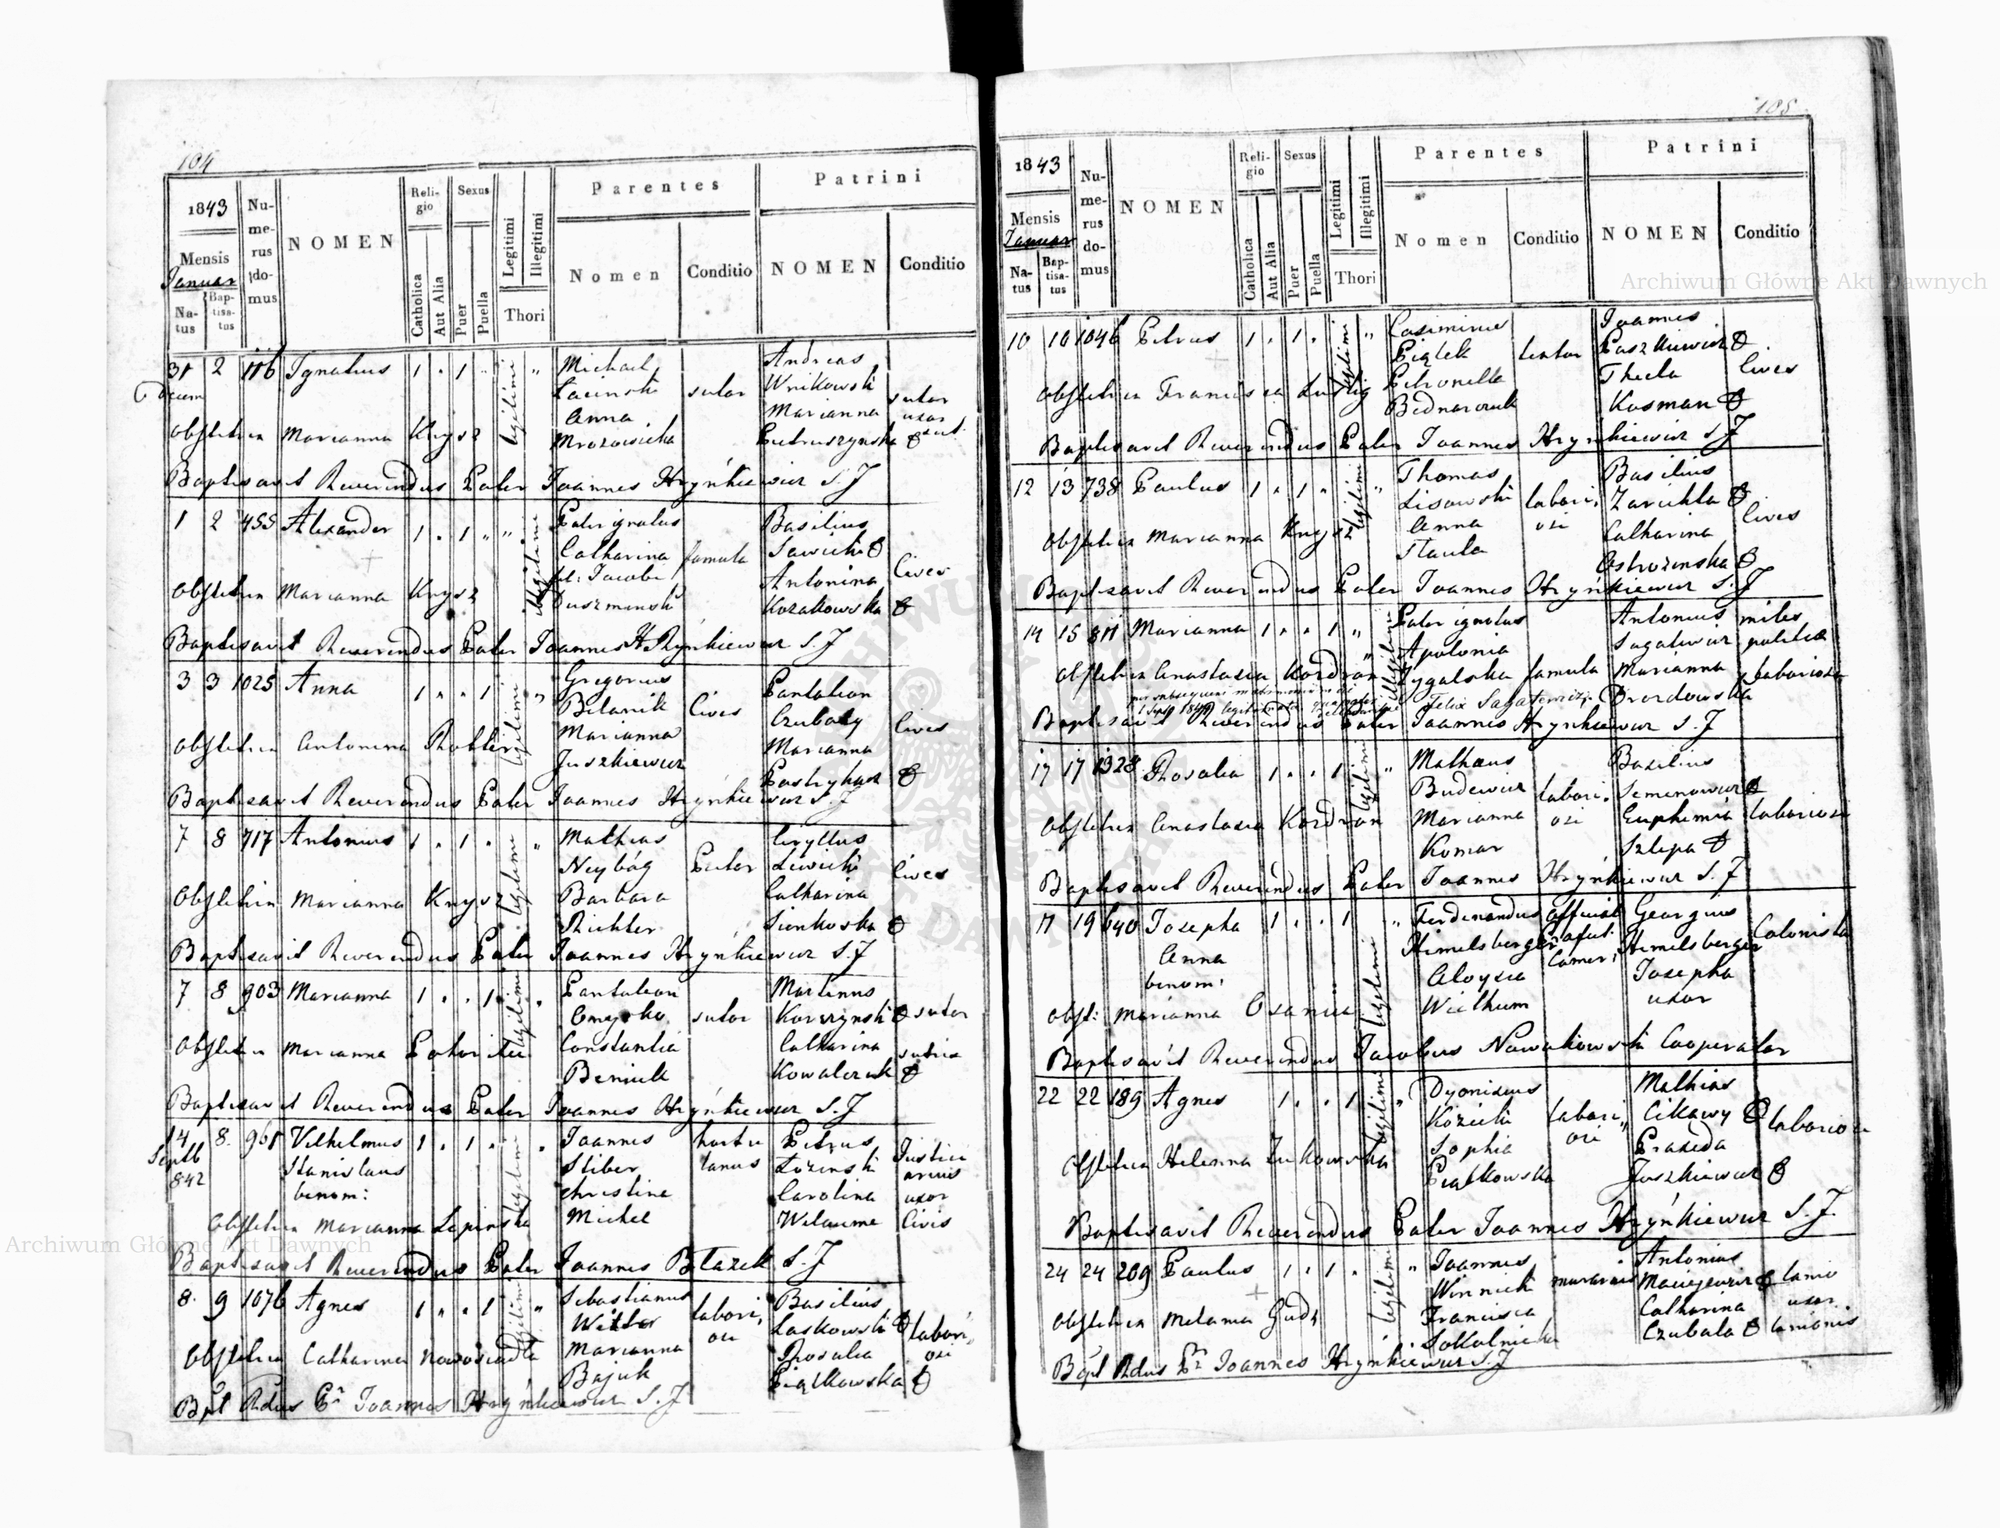 104
1843
Mensis
Januar
Natus
Baptisatus
Numerus domus
NOMEN
Religio
Catholica
Aut Alia
Sexus
Puer
Puella
Legitimi
Illegitimi
Thori
Parentes
Nomen
Conditio
Patrini
NOMEN
Conditio
31 2 116 Ignatius 1 " 1 " legitimi " Michael Andreas
Wnikowski
Anna sutor Marianna sutor uxor
Mrozowicka Pietruszynska
Obstetrix Marianna Knysz
Baptisavit Reverendus Pater Joannes Hrynkiewicz S.J
1 2 455 Alexander 1 " 1 " " illegitimi Pater ignotus Basilius
Catharina famula Sawicki
fil: Jacobi Antonina Cives
Duszminski Kozakowska
Obstetrix Marianna Knysz
Baptisavit Reverendus Pater Joannes Hrynkiewicz S.J
3 3 1025 Anna 1 " " 1 legitimi " Gregorius Pantaleon
Bilanik Cives Czubaty Cives
Marianna Marianna
Juszkiewicz
Obstetrix Antonina
Baptisavit Reverendus Pater Joannes Hrynkiewicz S.J
7 8 717 Antonius 1 " 1 " legitimi " Mathias Cyryllus
Lewicki Cives
Barbara Catharina
Richter Sienkoska
Obstetrix Marianna Knysz
Baptisavit Reverendus Pater Joannes Hrynkiewicz S.J
7 8 903 Marianna 1 " " 1 legitimi " Pantaleon Martinus
sutor Korczynski sutor
Constantia Catharina
Beniuk Kowalczuk
Obstetrix Marianna
Baptisavit Reverendus Pater Joannes Hrynkiewicz S.J
14 Septb 842 8 961 Vilhelmus 1 " 1 " legitimi " Joannes hortulanus Petrus
Stanislaus Stiber Lozinski
binom: Christine Carolina uxor
Michel Civis
Obstetrix Marianna Lepinska
Baptisavit Reverendus Pater Joannes Blazek S.J
8 9 1076 Agnes 1 " " 1 legitimi " Sebastianus Basilius
Laskowski
Marianna Rosalia
Bajuk Piątkowska
Obstetrix Catharina
Bpt Rdus Pr Joannes Hrynkiewicz S.J
105
1843
Mensis
Januar
Natus
Baptisatus
Numerus domus
NOMEN
Religio
Catholica
Aut Alia
Sexus
Puer
Puella
Legitimi
Illegitimi
Thori
Parentes
Nomen
Conditio
Patrini
NOMEN
Conditio
10 10 1046 Petrus 1 " 1 " legitimi " Casimirus Joannes
Piątek textor Paszkiewicz
Petronella Thecla Cives
Bednarczuk Kosman
Obstetrix Francisca Lustig
Baptisavit Reverendus Pater Joannes Hrynkiewicz S.J
12 13 738 Paulus 1 " 1 " legitimi " Thomas Basilius
Lisowski laboriosi
Anna Catharina Cives
Ostrozinska
Obstetrix Marianna Knysz
Baptisavit Reverendus Pater Joannes Hrynkiewicz S.J
14 15 811 Marianna 1 " " 1 " illegitimi Pater ignotus Antonius miles
Apolonia Sagatewicz politiae
Zygalska famula Marianna laboriosa
Drozdowska
Obstetrix Anastasia Kordvan
Baptisavit Reverendus Pater Joannes Hrynkiewicz S.J
17 17 1328 Rosalia 1 " " 1 legitimi " Matheus Basilius
Budewicz laboriosi Semenowicz
Marianna Euphimia laboriosi
Komar Szlepa
Obstetrix Anastasia Kordvan
Baptisavit Reverendus Pater Joannes Hrynkiewicz S.J
17 19 640 Josepha 1 " " 1 legitimi " Ferdinandus Georgius Colonista
Anna Himelsberger Himelsberger
binom: Aloysia Josepha
Wielhum uxor
Obst: Marianna
Baptisavit Reverendus Jacobus Nowakowski Cooperator
22 22 189 Agnes 1 " " 1 legitimi " Dyonisius Mathias
Kozicki laboriosi Cikawy laboriosi
Sophia Praxeda
Piątkowska Juszkiewicz
Obstetrix Helenna Zukowska
Baptisavit Reverendus Pater Joannes Hrynkiewicz S.J.
24 24 209 Paulus 1 " 1 " legitimi " Joannes Antonius
Winnicki murarius Maciejewicz lanio
Francisca Catharina uxor
Sokolnicka Czubala lanionis
Obstetrix Melania Gudz
Bapt Rdus Pr Joannes Hrynkiewicz S.J
Archiwum Główne Akt Dawnych
Archiwum Główne Akt Dawnych